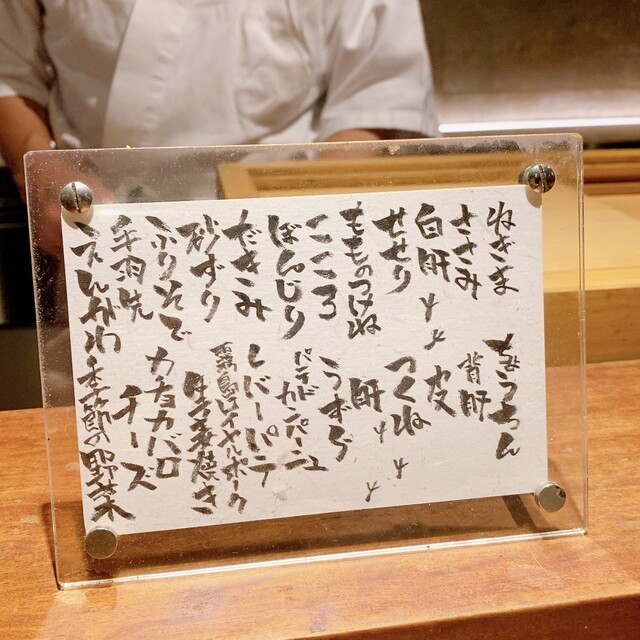 ねぎま
ちょうちん
ささみ
背肝
白肝
皮
せせり
つくね
もものつけね
肝
こころ
うずら
ぼんじり
パンドカンパーニュ
だきみ
レバーパテ
砂ずり
霧島ロイヤルポーク
ふりそで
手羽先
カチョカバロ
チーズ
えんがわ
季節の野菜